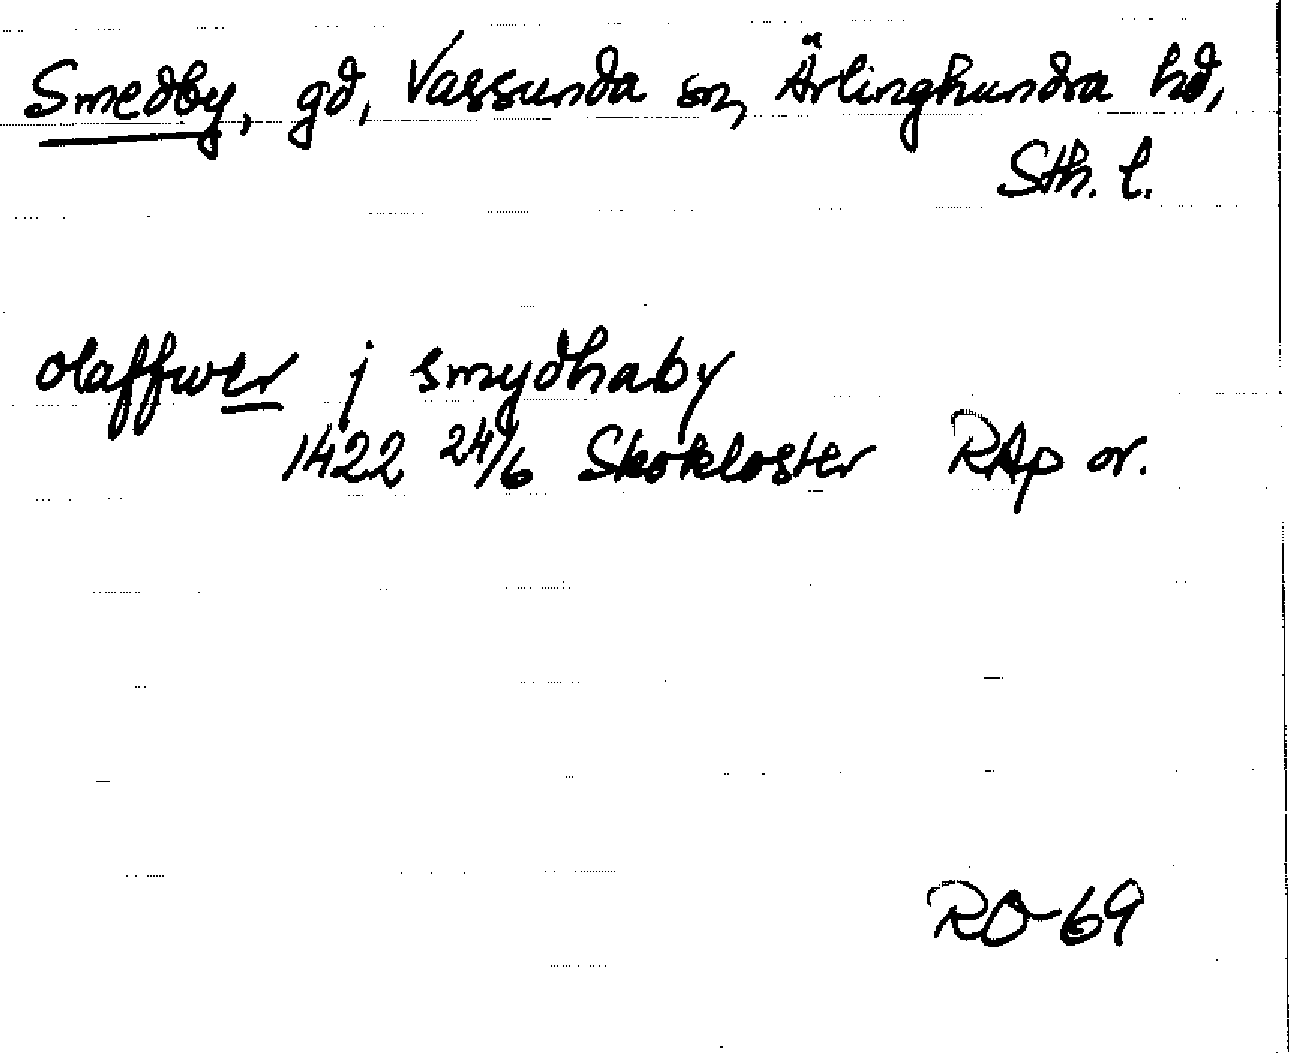 Smedby, gd, Vassunda sn, Ärlinghundra hd,
Sth. l.
olaffwer j smydhaby
1422 24/6 Skokloster RAp or.
RO-69